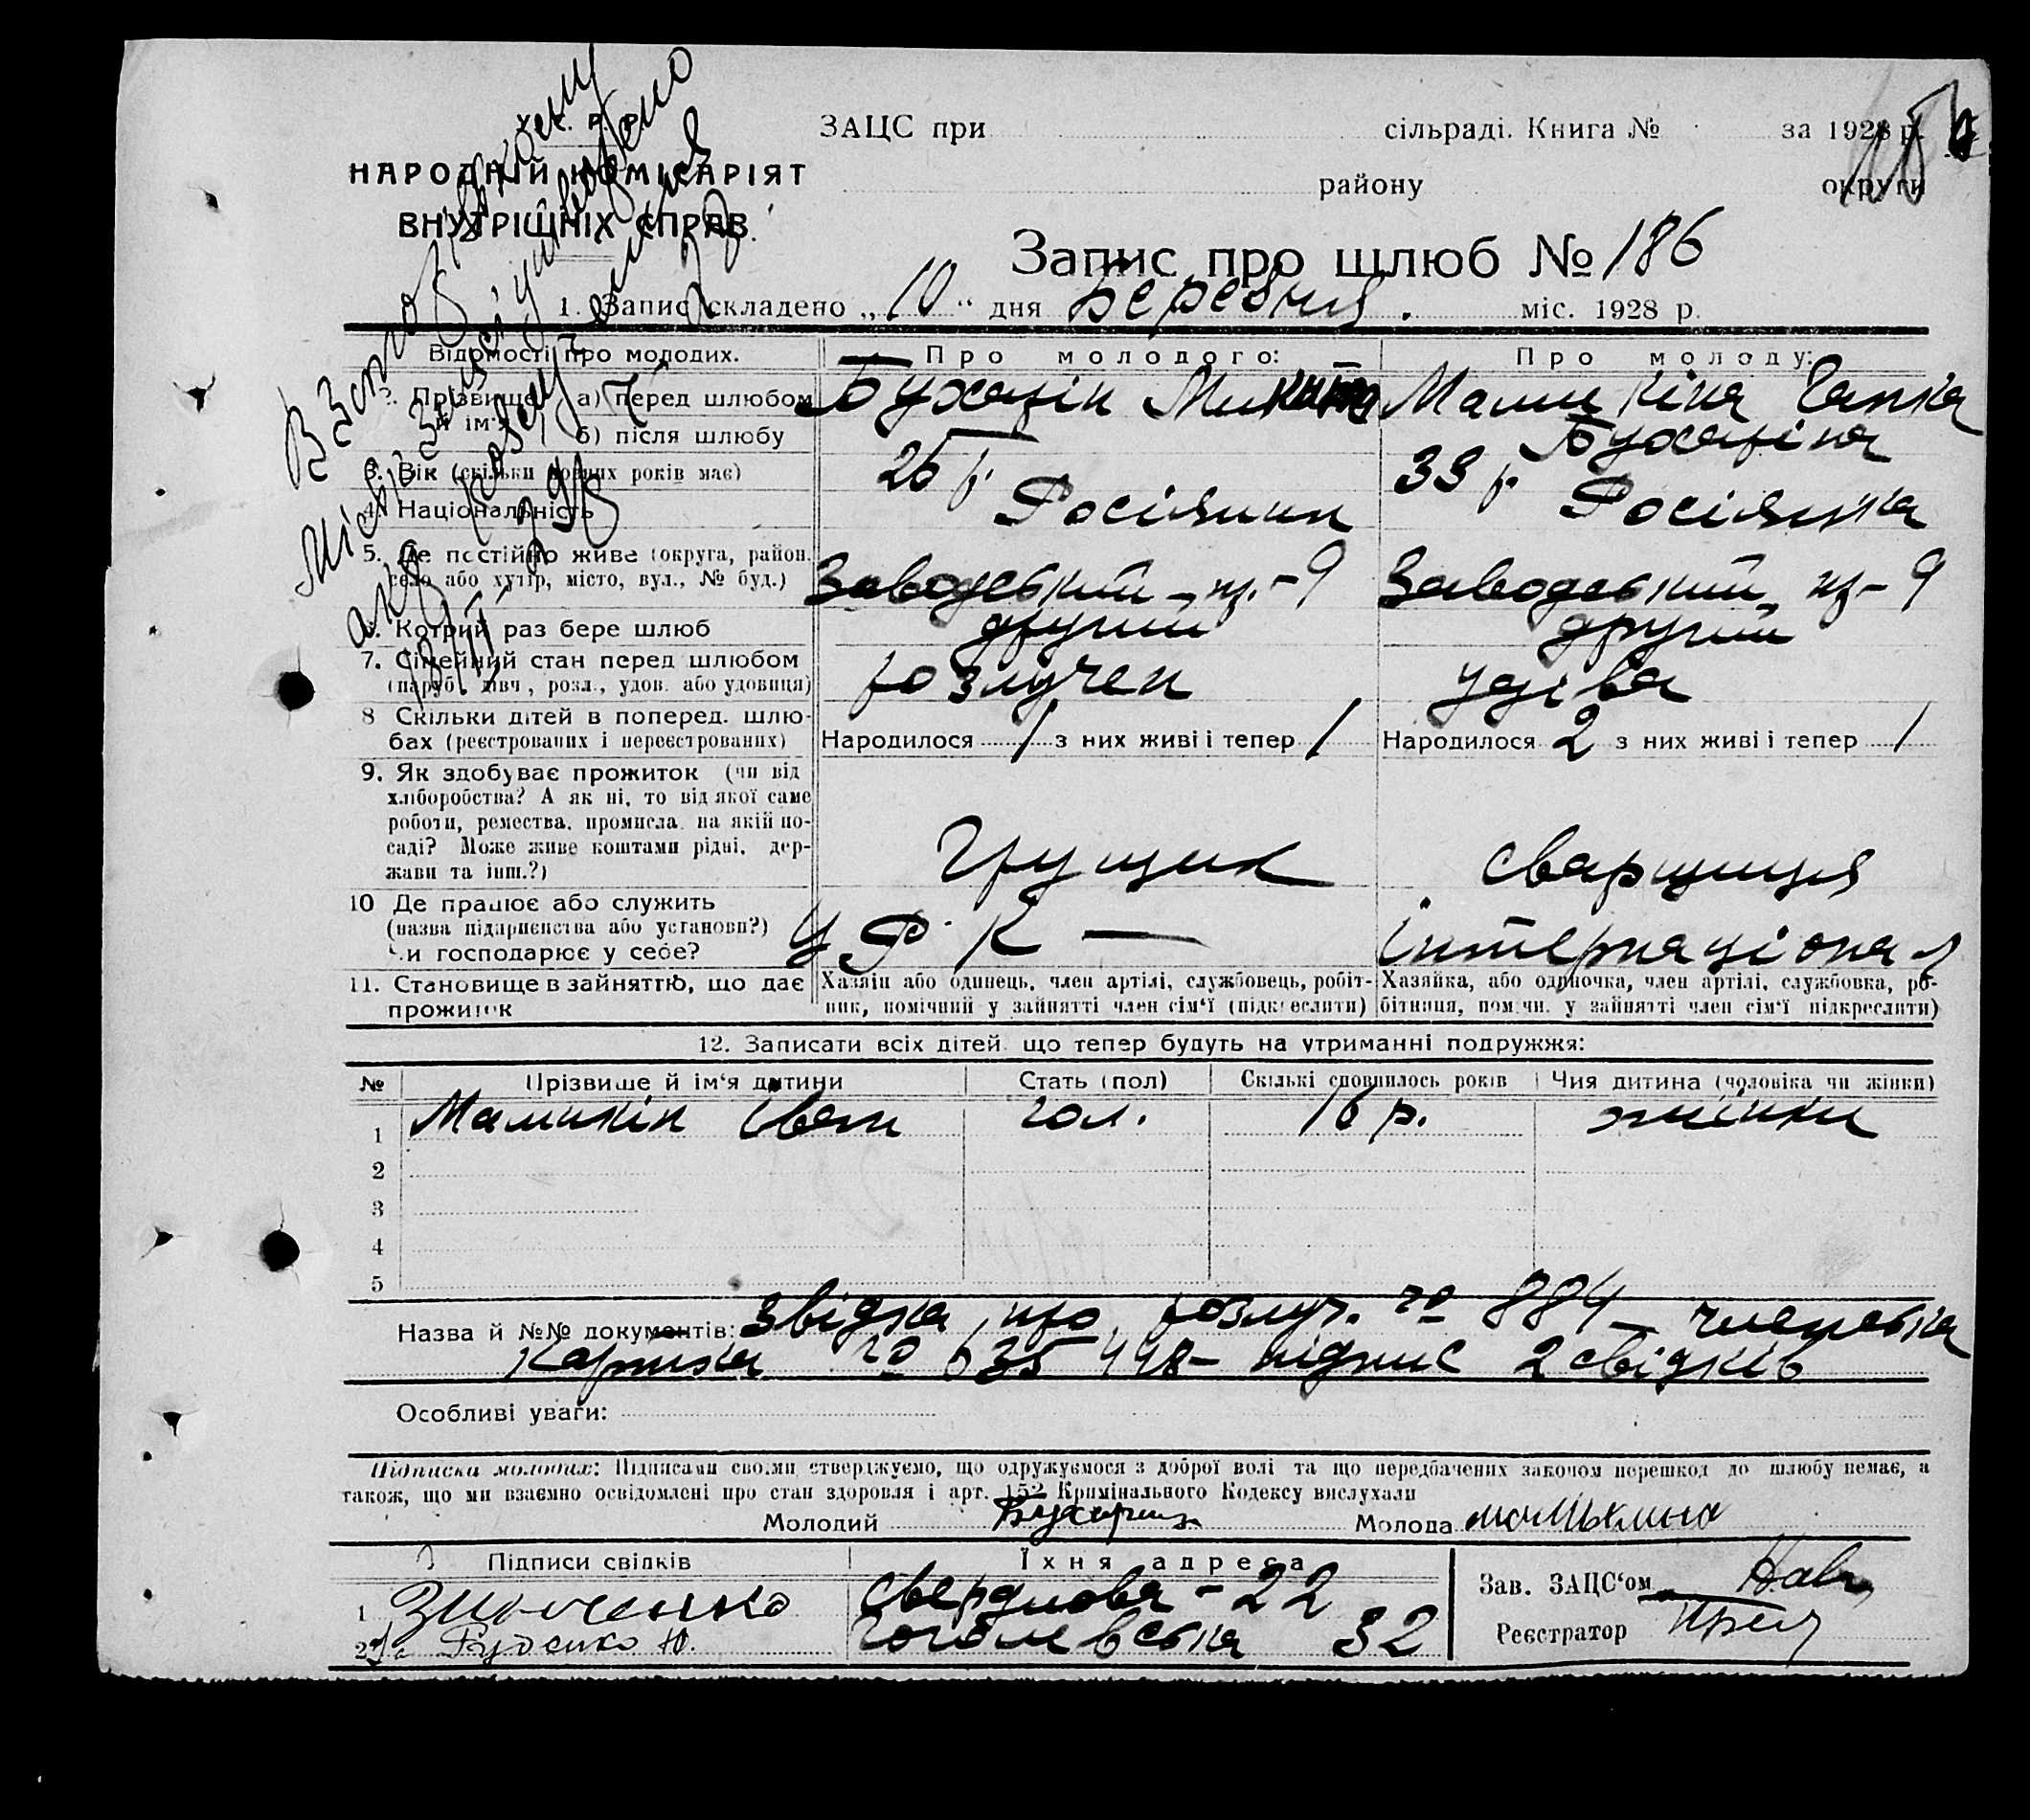 У. С. Р. Р.
НАРОДНІЙ КОМІСАРІЯТ
ВНУТРІШНІХ СПРАВ.
ЗАЦС при сільраді. Книга № за 1928 р.
району округи
Запис про шлюб № 186
1. Запис складено „10“ дня Березня. міс. 1928 р.
Відомості про молодих. Про молодого: Про молоду:
2. Прізвище й ім'я а) перед шлюбом Бухарін Микита Мамикіна Гапка
б) після шлюбу Бухаріна
3. Вік (скільки повних років має) 26 р. 33 р.
4. Національність Росіянин Росіянка
5. Де постійно живе (округа, район, село або хутір, місто, вул., № буд.) Заводський - 9 Заводський - 9
6. Котрий раз бере шлюб другий другий
7. Сімейний стан перед шлюбом (паруб., дівч., розл., удов. або удовиця) розлучен удова
8 Скільки дітей в поперед. шлюбах (реєстрованих і нереєстрованих) Народилося 1 з них живі і тепер 1 Народилося 2 з них живі і тепер 1
9. Як здобуває прожиток (чи від
хліборобства? А як ні, то від якої саме
роботи, ремества, промисла, на якій по-
саді? Може живе коштами рідні, дер-
жави та інш.?) Грущик сварщиця
10 Де працює або служить
(назва підприємства або установи?)
Чи господарює у себе? У.Р.К — Інтернаціонал
11. Становище в зайняттю, що дає прожиток
Хазяїн або одинець, член артілі, службовець, робіт-
ник, помічний у зайнятті член сім'ї (підкреслити)
Хазяйка, або одиночка, член артілі, службовка, ро-
бітниця, помічн. у зайнятті член сім'ї підкреслити)
12. Записати всіх дітей, що тепер будуть на утриманні подружжя:
№ Прізвище й ім'я дитини Стать (пол) Скількі сповнилось років Чия дитина (чоловіка чи жінки)
1 Мамикін Іван чол. 16 р. жінки
2
3
4
5
Назва й №№ документів: Звідка про розлуч. № 884 членська
картка № 635448 - підпис 2 свідків
Особливі уваги:
Підписка молодих: Підписами своїми стверджуємо, що одружуємося з доброї волі та що передбачених законом перешкод до шлюбу немає, а
також, що ми взаємно освідомлені про стан здоровля і арт. 152 Кримінального Кодексу вислухали
Молодий Бухарин Молода мамыкина
Підписи свідків Їхня адреса
1 Зинченко Свердлова - 22
2 Руденко Ю. Гоголевська 32
Зав. ЗАЦС'ом
Реєстратор